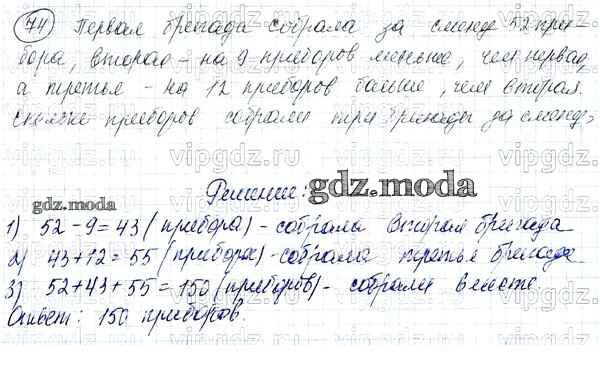 74 Первая бригада собрала за смену 52 при-
бора, вторая - на 9 приборов меньше, чем первая,
а третья - на 12 приборов больше, чем вторая.
Сколько приборов собрали три бригады за смену?
Решение:
gdz.moda
1) 52 - 9 = 43 (прибора) - собрала вторая бригада
2) 43 + 12 = 55 (прибора) - собрала третья бригада
3) 52 + 43 + 55 = 150 (приборов) - собрали вместе
Ответ: 150 приборов.
gdz.moda